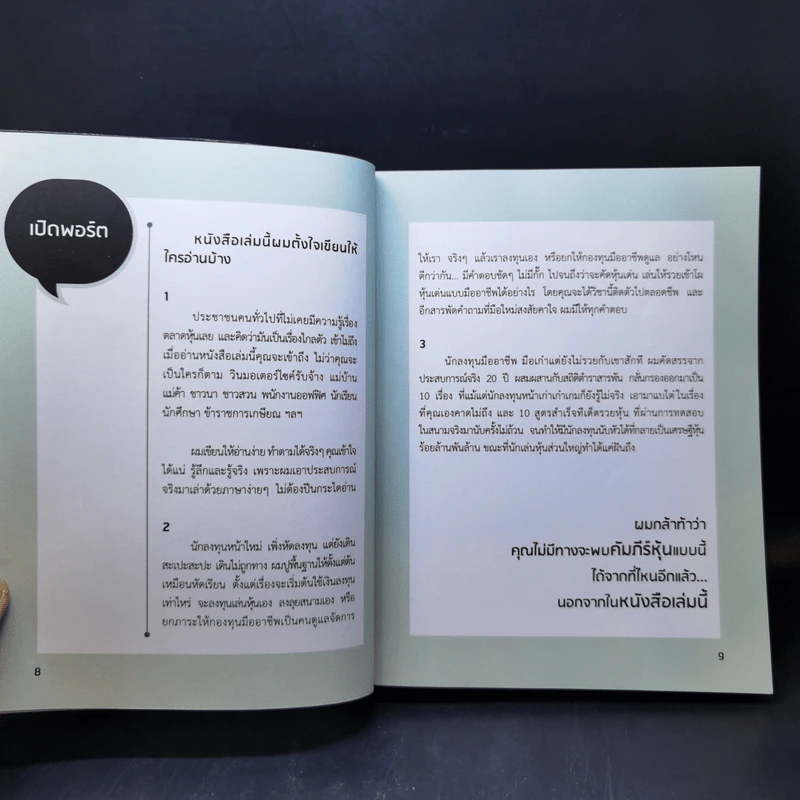 เปิดพอร์ต
หนังสือเล่มนี้ผมตั้งใจเขียนให้
ใครอ่านบ้าง
1
ประชาชนคนทั่วไปที่ไม่เคยมีความรู้เรื่อง
ตลาดหุ้นเลย และคิดว่ามันเป็นเรื่องไกลตัว เข้าไม่ถึง
เมื่ออ่านหนังสือเล่มนี้คุณจะเข้าถึง ไม่ว่าคุณจะ
เป็นใครก็ตาม วินมอเตอร์ไซค์รับจ้าง แม่บ้าน
แม่ค้า ชาวนา ชาวสวน พนักงานออฟฟิศ นักเรียน
นักศึกษา ข้าราชการเกษียณ ฯลฯ
ผมเขียนให้อ่านง่าย ทำตามได้จริงๆ คุณเข้าใจ
ได้แน่ รู้ลึกและรู้จริง เพราะผมเอาประสบการณ์
จริงมาเล่าด้วยภาษาง่ายๆ ไม่ต้องปีนกระไดอ่าน
2
นักลงทุนหน้าใหม่ เพิ่งหัดลงทุน แต่ยังเดิน
สะเปะสะปะ เดินไม่ถูกทาง ผมปูพื้นฐานให้ตั้งแต่ต้น
เหมือนหัดเรียน ตั้งแต่เรื่องจะเริ่มต้นใช้เงินลงทุน
เท่าไหร่ จะลงทุนเล่นหุ้นเอง ลงลุยสนามเอง หรือ
ยกภาระให้กองทุนมืออาชีพเป็นคนดูแลจัดการ
8
ให้เรา จริงๆ แล้วเราลงทุนเอง หรือยกให้กองทุนมืออาชีพดูแล อย่างไหน
ดีกว่ากัน... มีคำตอบชัดๆ ไม่มีกั๊ก ไปจนถึงว่าจะคัดหุ้นเด่น เล่นให้รวยเข้าโผ
หุ้นเด่นแบบมืออาชีพได้อย่างไร โดยคุณจะได้วิชานี้ติดตัวไปตลอดชีพ และ
อีกสารพัดคำถามที่มือใหม่สงสัยคาใจ ผมมีให้ทุกคำตอบ
3
นักลงทุนมืออาชีพ มือเก่าแต่ยังไม่รวยกับเขาสักที ผมคัดสรรจาก
ประสบการณ์จริง 20 ปี ผสมผสานกับสถิติตำราสารพัน กลั่นกรองออกมาเป็น
10 เรื่อง ที่แม้แต่นักลงทุนหุ้นเก่าเก๋าเกมก็ยังรู้ไม่จริง เอามาแบไต๋ ในเรื่อง
ที่คุณเองคาดไม่ถึง และ 10 สูตรสำเร็จทีเด็ดรวยหุ้น ที่ผ่านการทดสอบ
ในสนามจริงมานับครั้งไม่ถ้วน จนทำให้มีนักลงทุนนับหัวได้ที่กลายเป็นเศรษฐีหุ้น
ร้อยล้านพันล้าน ขณะที่นักเล่นหุ้นส่วนใหญ่ทำได้แค่ฝันถึง
ผมกล้าท้าว่า
คุณไม่มีทางจะพบคัมภีร์หุ้นแบบนี้
ได้จากที่ไหนอีกแล้ว...
นอกจากในหนังสือเล่มนี้
9